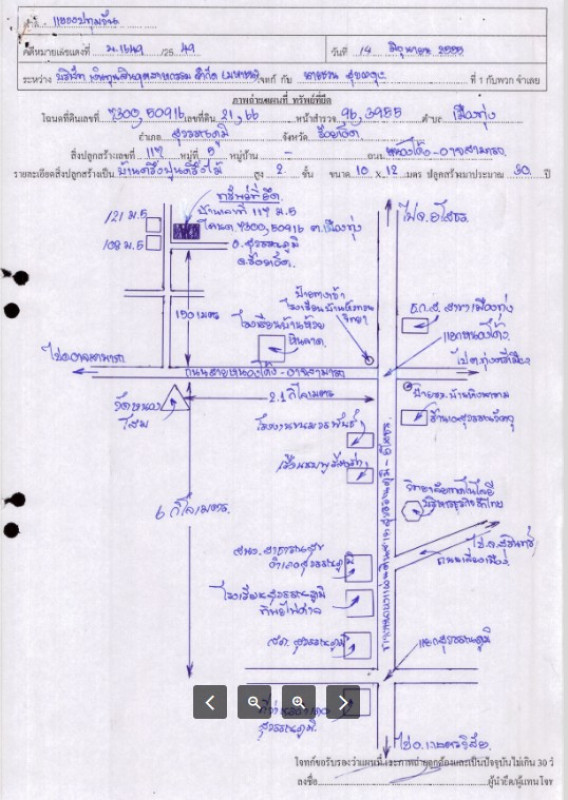 ศาล แขวงปทุมวัน
คดีหมายเลขแดงที่ ผ.1649 /25 49 วันที่ 14 มิถุนายน 2555
ระหว่าง บริษัท เงินทุนสินอุตสาหกรรม จำกัด (มหาชน) โจทก์ กับ ที่ 1 กับพวก จำเลย
ภาพถ่ายแผนที่ ทรัพย์ที่ยึด
โฉนดที่ดินเลขที่ 7300, 50916 เลขที่ดิน 21, 66 หน้าสำรวจ 96, 3955 ตำบล เมืองทุ่ง
อำเภอ สุวรรณภูมิ จังหวัด ร้อยเอ็ด
สิ่งปลูกสร้างเลขที่ 117 หมู่ที่ 5 หมู่บ้าน - ถนน หนองโด้ง-อาจสามารถ
รายละเอียดสิ่งปลูกสร้างเป็น บ้านครึ่งปูนครึ่งไม้ สูง 2 ชั้น ขนาด 10 x 12 เมตร ปลูกสร้างมาประมาณ 30 ปี
ทรัพย์ที่ยึด
บ้านเลขที่ 117 ม.5
โฉนด 7300, 50916 ต.เมืองทุ่ง
อ.สุวรรณภูมิ
จ.ร้อยเอ็ด
121 ม.5
108 ม.5
ไป จ.ยโสธร
190 เมตร
ป้ายทางเข้า
วิทยา
โรงเรียนบ้านห้วย
หินลาด
ธ.ก.ส. สาขาเมืองทุ่ง
แยกหนองโด้ง
ไป อ.อาจสามารถ
ถนนสายหนองโด้ง - อาจสามารถ
ไป ต.ทุ่งศรีเมือง
วัดหนอง
โสม
2.1 กิโลเมตร
6 กิโลเมตร
สนง. สาธารณสุข
อำเภอสุวรรณภูมิ
โรงเรียนสุวรรณภูมิ
พิทยไพศาล
สภ. สุวรรณภูมิ
ไป จ.สุรินทร์
ถนนเลี่ยงเมือง
แยกสุวรรณภูมิ
ที่ว่าการอำเภอ
สุวรรณภูมิ
ไป อ.เกษตรวิสัย
โจทก์ขอรับรองว่าแผนที่และภาพถ่ายถูกต้องและเป็นปัจจุบันไม่เกิน 30 วั
ลงชื่อ ผู้นำยึด/ผู้แทนโจท